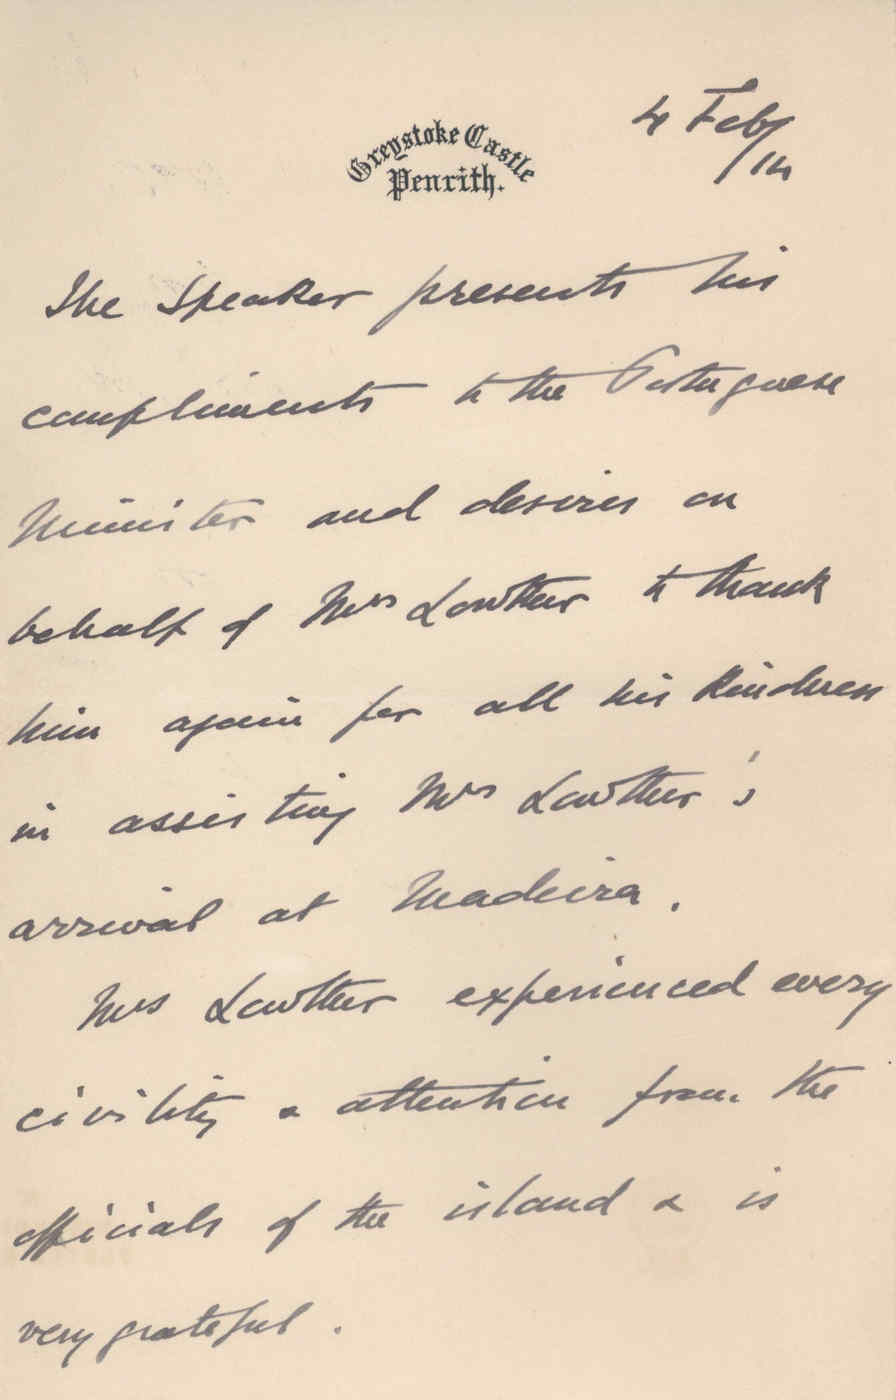 4 Feb/14
Greystoke Castle
Penrith.
The Speaker presents his
compliments to the Portuguese
Minister and desires on
behalf of Mrs Lowther to thank
him again for all his kindness
in assisting Mrs Lowther's
arrival at Madeira.
Mrs Lowther experienced every
civility & attention from the
officials of the island & is
very grateful.